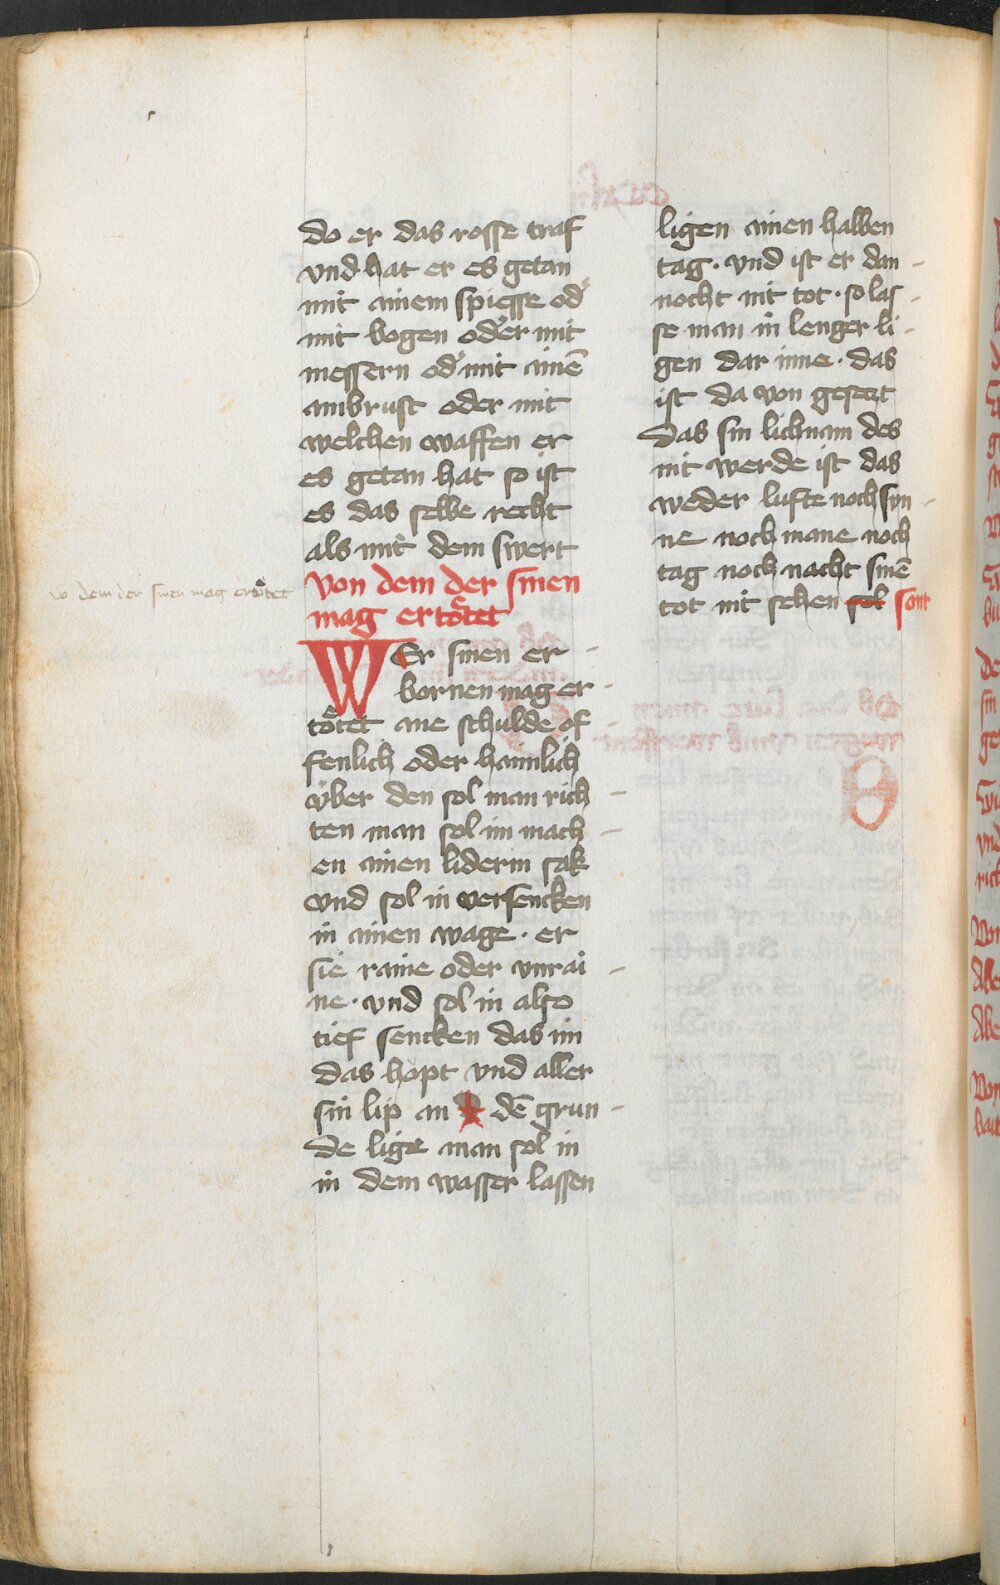 do er das rosse traf
vnd hat er es getan
mit ainem spiesse od'
mit bogen oder mit
messern od' mit ainē
ambrust oder mit
welchen waffen er
es getan hat so ist
es das selbe recht
als mit dem swert
von dem der sinen
mag ertoͤtet
vo dem der sinen mag ertoͤtet
WEr sinen er
bornen mag er
toͤtet ane schulde of
fenlich oder haimlich
vͤber den sol man rich
ten man sol im mach
en ainen liderin sak
vnd sol in versencken
in ainen wage · er
sie raine oder vnrai
ne · vnd sol in also
tief sencken das im
das hopt vnd aller
sin lip an dē grun
de lige man sol in
in dem wasser lassen
ligen ainen halben
tag · vnd ist er dan
nocht nit tot · so las
se man in lenger li
gen dar inne · das
ist da von gesetzt
Das sin lichnam des
nit werde ist das
weder lufte noch sun
ne noch mane noch
tag noch nacht sinē
tot nit sehen sol sont